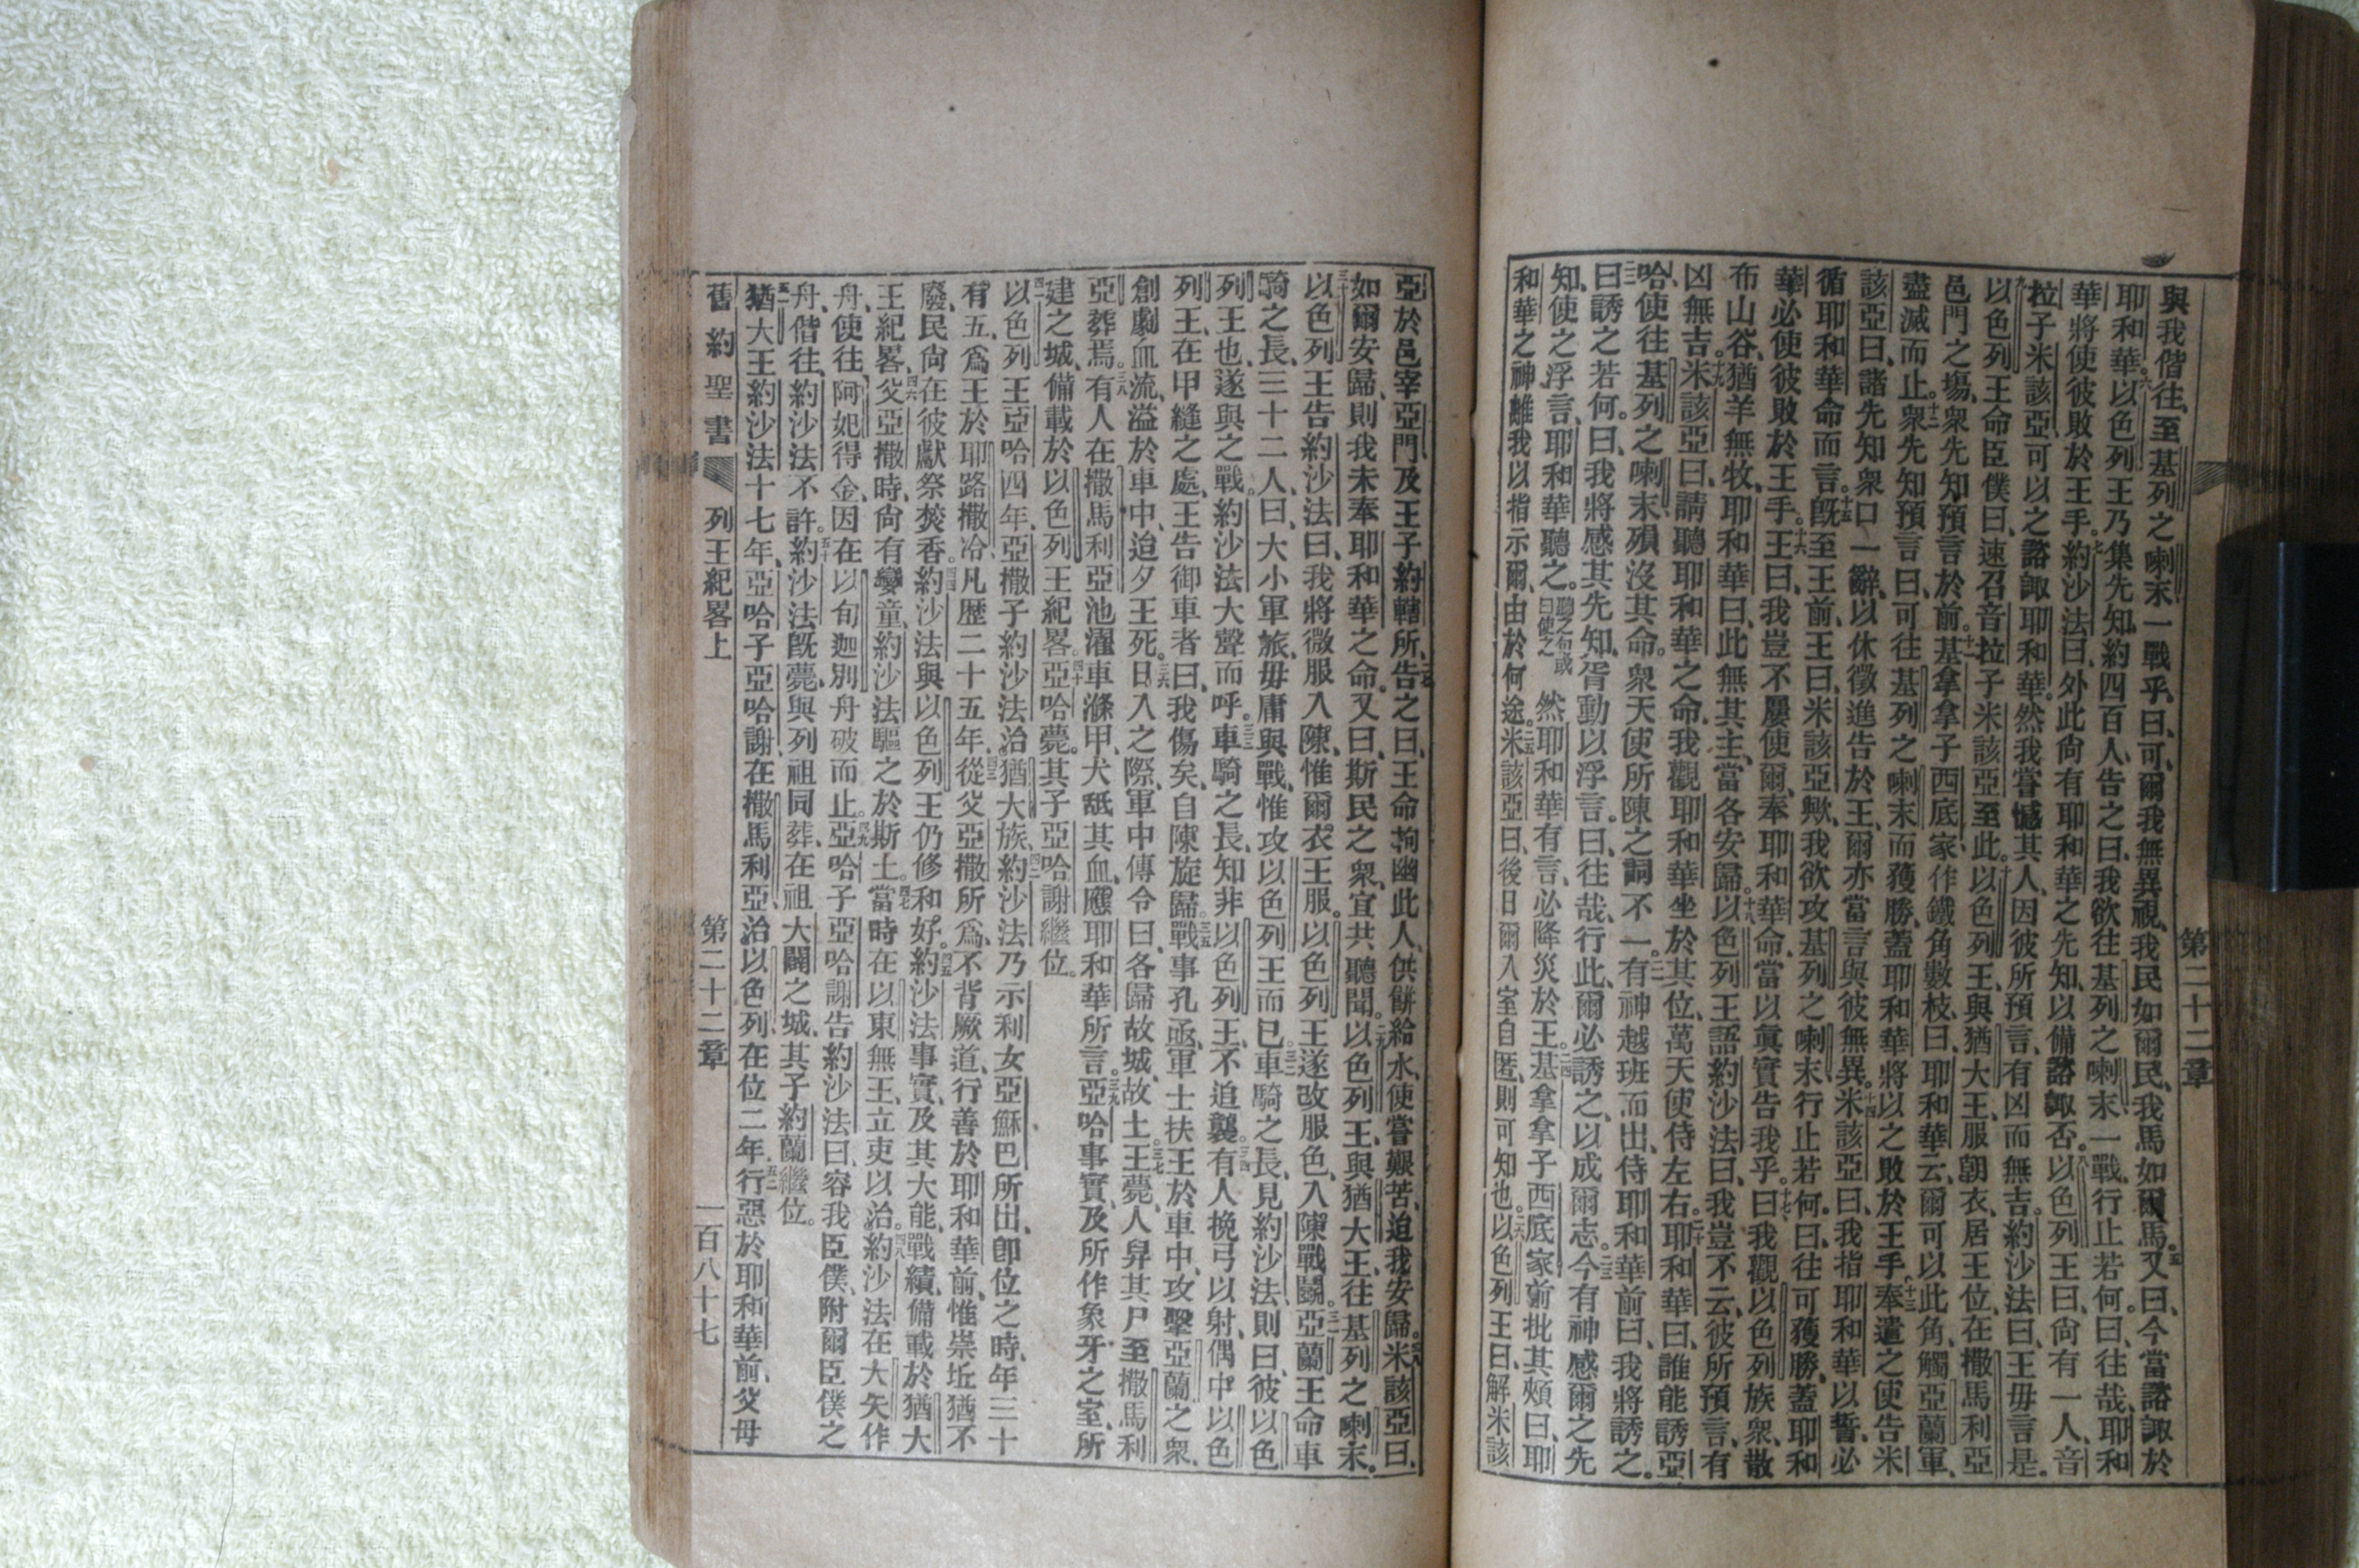 第二十二章
與我偕往、至基列之喇末一戰乎、曰、可、爾我無異視、我民如爾民、我馬如爾馬。五又曰、今當諮諏於
耶和華。六以色列王乃集先知、約四百人、告之曰、我欲往基列之喇末一戰、行止若何。曰、往哉、耶和
華將使彼敗於王手。七約沙法曰、外此尙有耶和華之先知、以備諮諏否。八以色列王曰、尙有一人、音
拉子米該亞、可以之諮諏耶和華。然我嘗憾其人、因彼所預言、有凶而無吉。約沙法曰、王毋言是。
九以色列王命臣僕曰、速召音拉子米該亞至此。十以色列王、與猶大王、服朝衣、居王位、在撒馬利亞
邑門之場、衆先知預言於前。十一基拿拿子西底家作鐵角數枝、曰、耶和華云、爾可以此角、觸亞蘭軍、
盡滅而止。十二衆先知預言曰、可往基列之喇末而獲勝、蓋耶和華將以之敗於王手。十三奉遣之使告米
該亞曰、諸先知衆口一辭、以休徵進告於王、爾亦當言與彼無異。十四米該亞曰、我指耶和華以誓、必
循耶和華命而言。十五旣至王前、王曰、米該亞歟、我欲攻基列之喇末、行止若何。曰、往可獲勝、蓋耶和
華必使彼敗於王手。十六王曰、我豈不屢使爾、奉耶和華命、當以眞實告我乎。十七曰、我觀以色列族衆、散
布山谷、猶羊無牧、耶和華曰、此無其主、當各安歸。十八以色列王語約沙法曰、我豈不云、彼所預言、有
凶無吉。十九米該亞曰、請聽耶和華之命、我觀耶和華坐於其位、萬天使侍左右。二十耶和華曰、誰能誘亞
哈、使往基列之喇末、殞沒其命。衆天使所陳之詞不一。二一有神越班而出、侍耶和華前曰、我將誘之。
二二曰、誘之若何。曰、我將感其先知、胥動以浮言。曰、往哉、行此、爾必誘之、以成爾志。二三今有神感爾之先
知、使之浮言、耶和華聽之。聽之句或曰使之然耶和華有言、必降災於王。二四基拿拿子西底家前批其頰曰、耶
和華之神、離我以指示爾、由於何途。二五米該亞曰、後日爾入室自匿、則可知也。二六以色列王曰、解米該
亞於邑宰亞門、及王子約轄所、二七告之曰、王命拘幽此人、供餅給水、使嘗艱苦、迨我安歸。二八米該亞曰、
如爾安歸、則我未奉耶和華之命。又曰、斯民之衆、宜共聽聞。二九以色列王、與猶大王、往基列之喇末。
三十以色列王告約沙法曰、我將微服入陳、惟爾衣王服。以色列王遂改服色、入陳戰鬬。三一亞蘭王命車
騎之長、三十二人曰、大小軍旅、毋庸與戰、惟攻以色列王而已。三二車騎之長、見約沙法、則曰、彼以色
列王也、遂與之戰。約沙法大聲而呼。三三車騎之長、知非以色列王、不追襲。三四有人挽弓以射、偶中以色
列王、在甲縫之處、王告御車者曰、我傷矣、自陳旋歸。三五戰事孔亟、軍士扶王於車中、攻擊亞蘭之衆、
創劇血流、溢於車中、迨夕王死。三六日入之際、軍中傳令曰、各歸故城、故土。三七王薨、人舁其尸至撒馬利
亞葬焉。三八有人在撒馬利亞池濯車滌甲、犬舐其血、應耶和華所言。三九亞哈事實、及所作象牙之室、所
建之城、備載於以色列王紀畧。四十亞哈薨、其子亞哈謝繼位。
四一以色列王亞哈四年、亞撒子約沙法治猶大族、四二約沙法乃示利女亞穌巴所出、卽位之時、年三十
有五、爲王於耶路撒冷、凡歷二十五年、四三從父亞撒所爲、不背厥道、行善於耶和華前、惟崇坵猶不
廢、民尙在彼獻祭焚香。四四約沙法與以色列王仍修和好。四五約沙法事實、及其大能、戰績、備載於猶大
王紀畧。四六父亞撒時、尙有孌童、約沙法驅之於斯土。四七當時在以東無王、立吏以治。四八約沙法在大矢作
舟、使往阿妃得金、因在以旬迦別舟破而止。四九亞哈子亞哈謝告約沙法曰、容我臣僕、附爾臣僕之
舟、偕往、約沙法不許。五十約沙法旣薨、與列祖同葬、在祖大闢之城、其子約蘭繼位。
五一猶大王約沙法十七年、亞哈子亞哈謝、在撒馬利亞治以色列、在位二年、五二行惡於耶和華前、父母
舊約聖書 列王紀畧上 第二十二章 一百八十七